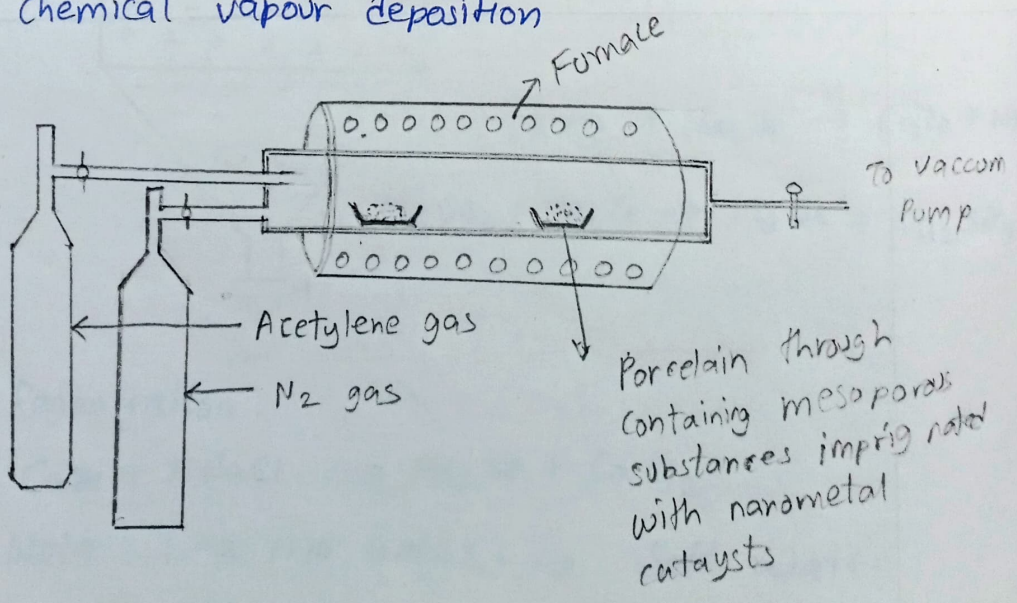 Chemical vapour deposition
Furnace
To vaccum
Pump
Acetylene gas
N2 gas
Porcelain through
containing mesoporous
substances imprignated
with nanometal
cataysts